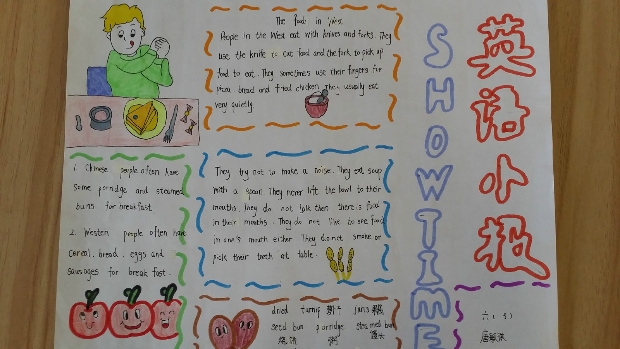 The food in West
People in the West eat with knives and forks. They
use the knife to cut food and the fork to pick up
food to eat. They sometimes use their fingers for
bread and fried chicken. They usually eat
very quietly
They try not to make a noise. They eat soup
with a spoon. They never lift the bowl to their
mouths. They do not talk when there is food
in their mouths. They do not like to see food
in one's mouth either. They do not smoke or
pick their teeth at table.
1. Chinese people often have
some porridge and steamed
buns for breakfast
2. Western people often have
cereal, bread, eggs and
sausages for breakfast.
dried turnip
seed bun porridge steamed bun
粥 馒头
SHOWTIME
英语小报
六(3)